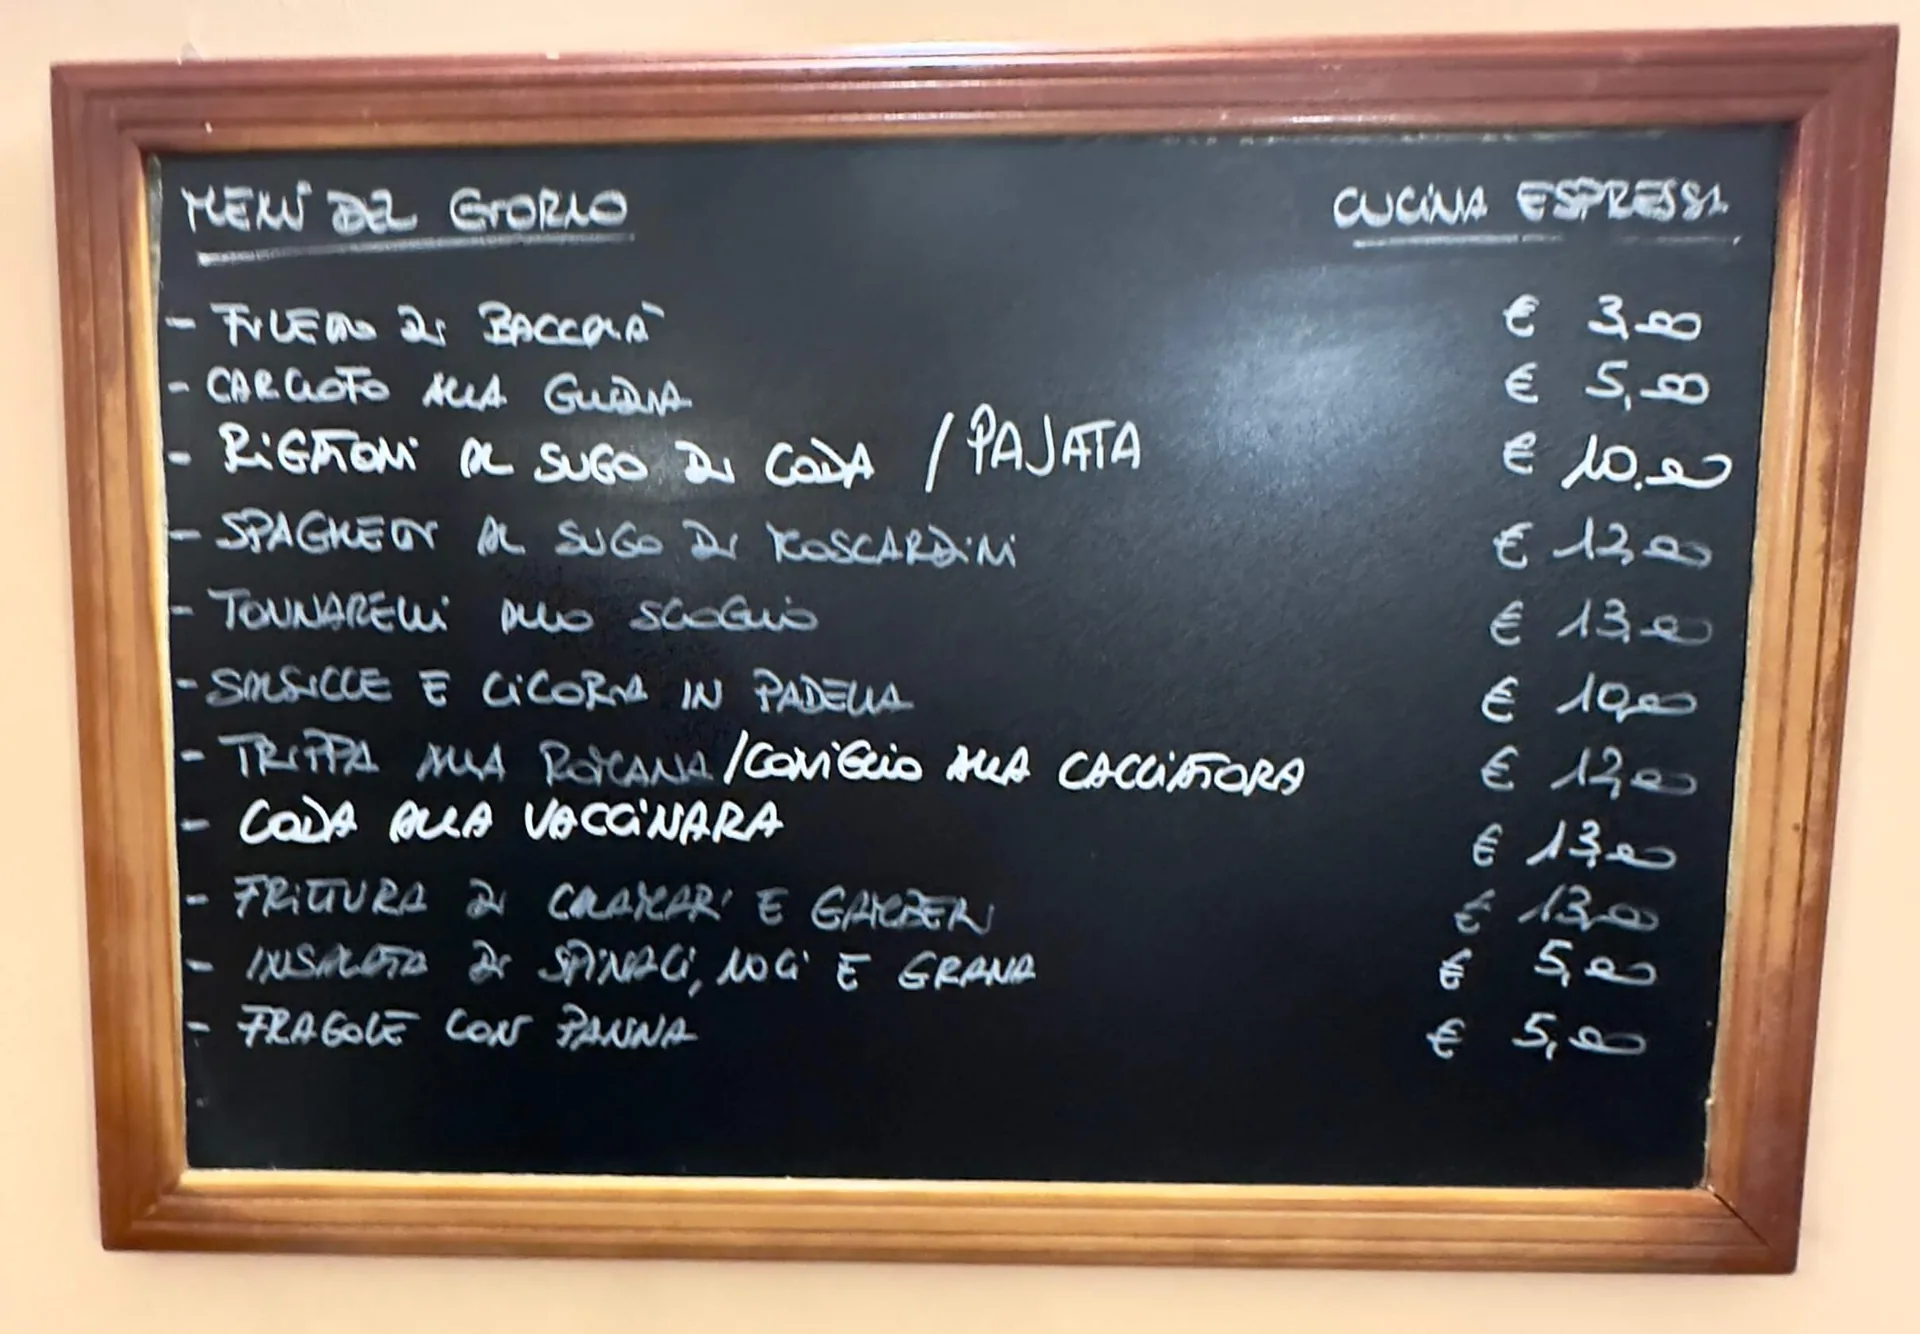 MENÙ DEL GIORNO CUCINA ESPRESSA
- FILETTO DI BACCALÀ € 3,00
- CARCIOFO ALLA GIUDIA € 5,00
- RIGATONI AL SUGO DI CODA / PAJATA € 10,00
- SPAGHETTI AL SUGO DI MOSCARDINI € 12,00
- TONNARELLI ALLO SCOGLIO € 13,00
- SALSICCE E CICORIA IN PADELLA € 10,00
- TRIPPA ALLA ROMANA / CONIGLIO ALLA CACCIATORA € 12,00
- CODA ALLA VACCINARA € 13,00
- FRITTURA DI CALAMARI E GAMBERI € 13,00
- INSALATA DI SPINACI, NOCI E GRANA € 5,00
- FRAGOLE CON PANNA € 5,00